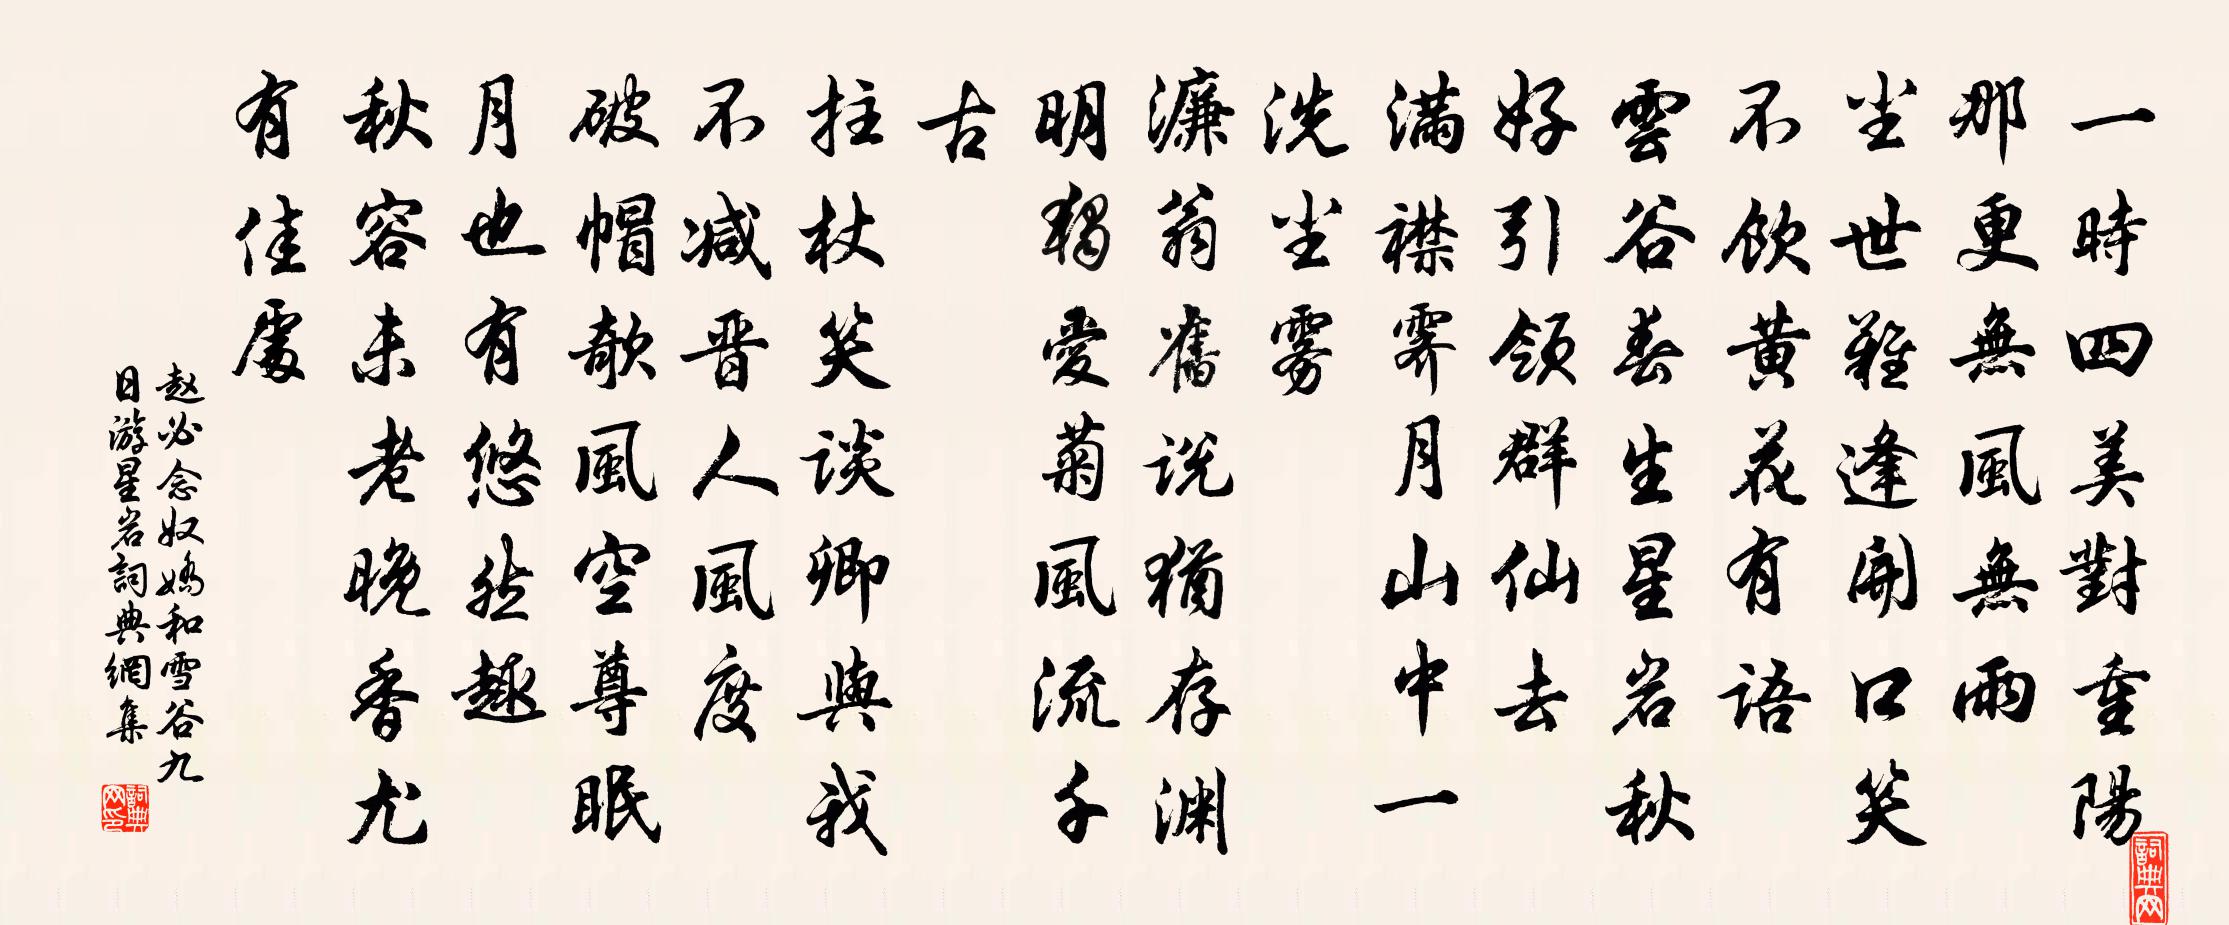 一時四美對重陽
那更無風無雨
尘世難逢開口笑
不飲黄花有語
雲谷春生星岩秋
好引領群仙去
满襟霁月山中一
洗尘雾
濂翁舊说猶存渊
明獨愛菊風流千
古
拄杖笑谈卿與我
不减晋人風度
破帽欹風空尊眠
月也有悠然趣
秋容未老晚香尤
有佳處
赵必念奴嬌和雪谷九
日游星岩詞典網集
詞典网
詞典网印